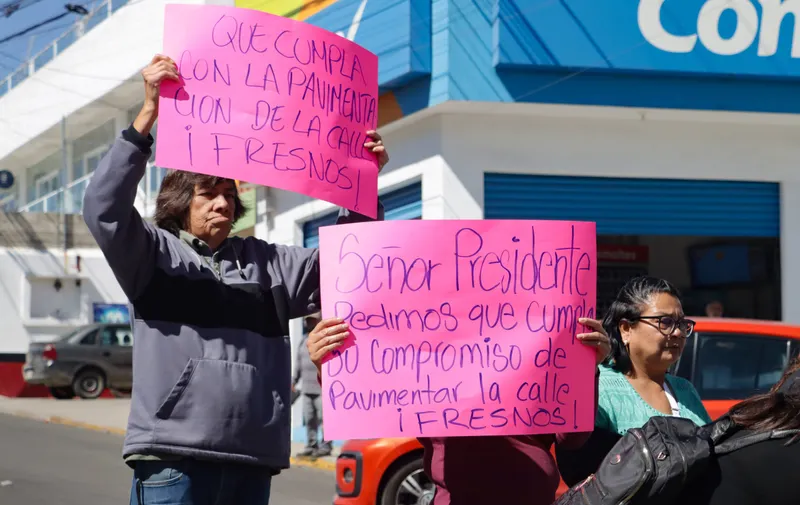 QUE CUMPLA
CON LA PAVIMENTA
CION DE LA CALLE
¡FRESNOS!
Señor Presidente
Pedimos que cumpla
su Compromiso de
Pavimentar la calle
¡FRESNOS!
Con